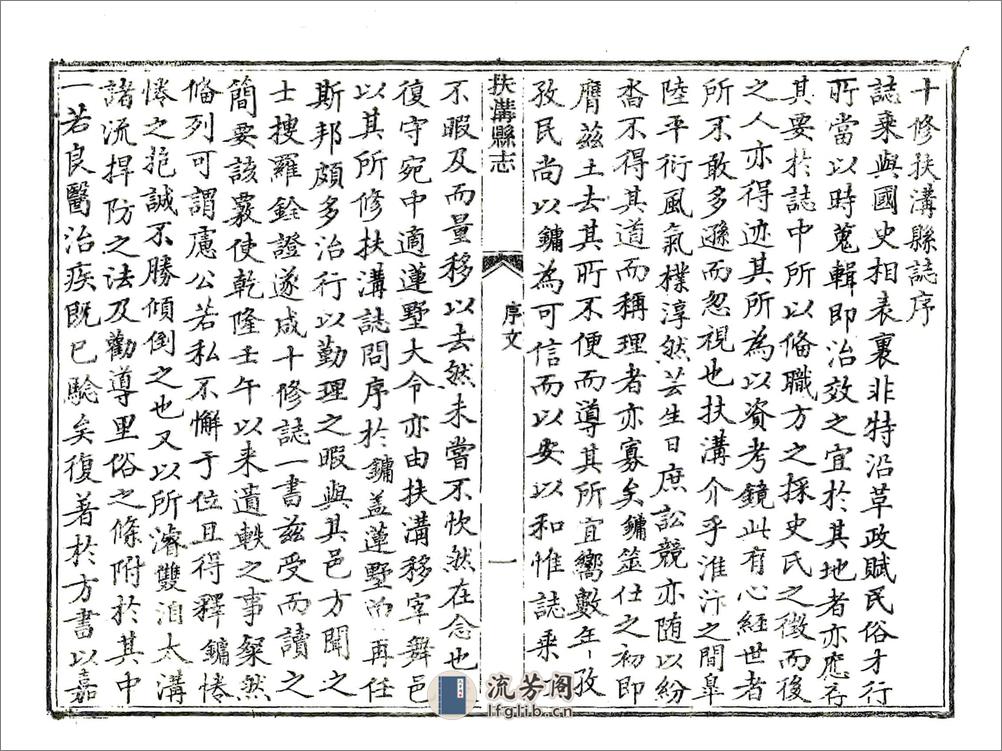 十修扶溝縣誌序
誌乘與國史相表裏非特沿革政賦民俗才行
所當以時蒐輯即治效之宜於其地者亦應存
其要於誌中所以俻職方之採史氏之徵而後
之人亦得迹其所為以資考鏡此有心經世者
所不敢多遜而忽視也扶溝介乎淮汴之間臯
陸平衍風氣樸淳然芸生日庶訟競亦随以紛
沓不得其道而稱理者亦寡矣鏞筮仕之初即
膺茲土去其所不便而導其所宜嚮數年孜
孜民尚以鏞為可信而以安以和惟誌乘
扶溝縣志
序文
一
不暇及而量移以去然未嘗不怏然在念也
復守宛中適蓮墅大令亦由扶溝移宰舞邑
以其所修扶溝誌問序於鏞盖蓮墅而再任
斯邦頗多治行以勤理之暇與其邑方聞之
士搜羅銓證遂成十修誌一書茲受而讀之
簡要該覈使乾隆壬午以来遺軼之事粲然
俻列可謂慮公若私不懈于位且得釋鏞惓
惓之葹誠不勝傾倒之也又以所濬雙洎太溝
諸流捍防之法及勸導里俗之條附於其中
一若良醫治疾既已驗矣復著於方書以嘉
流芳阁
lfglib.cn